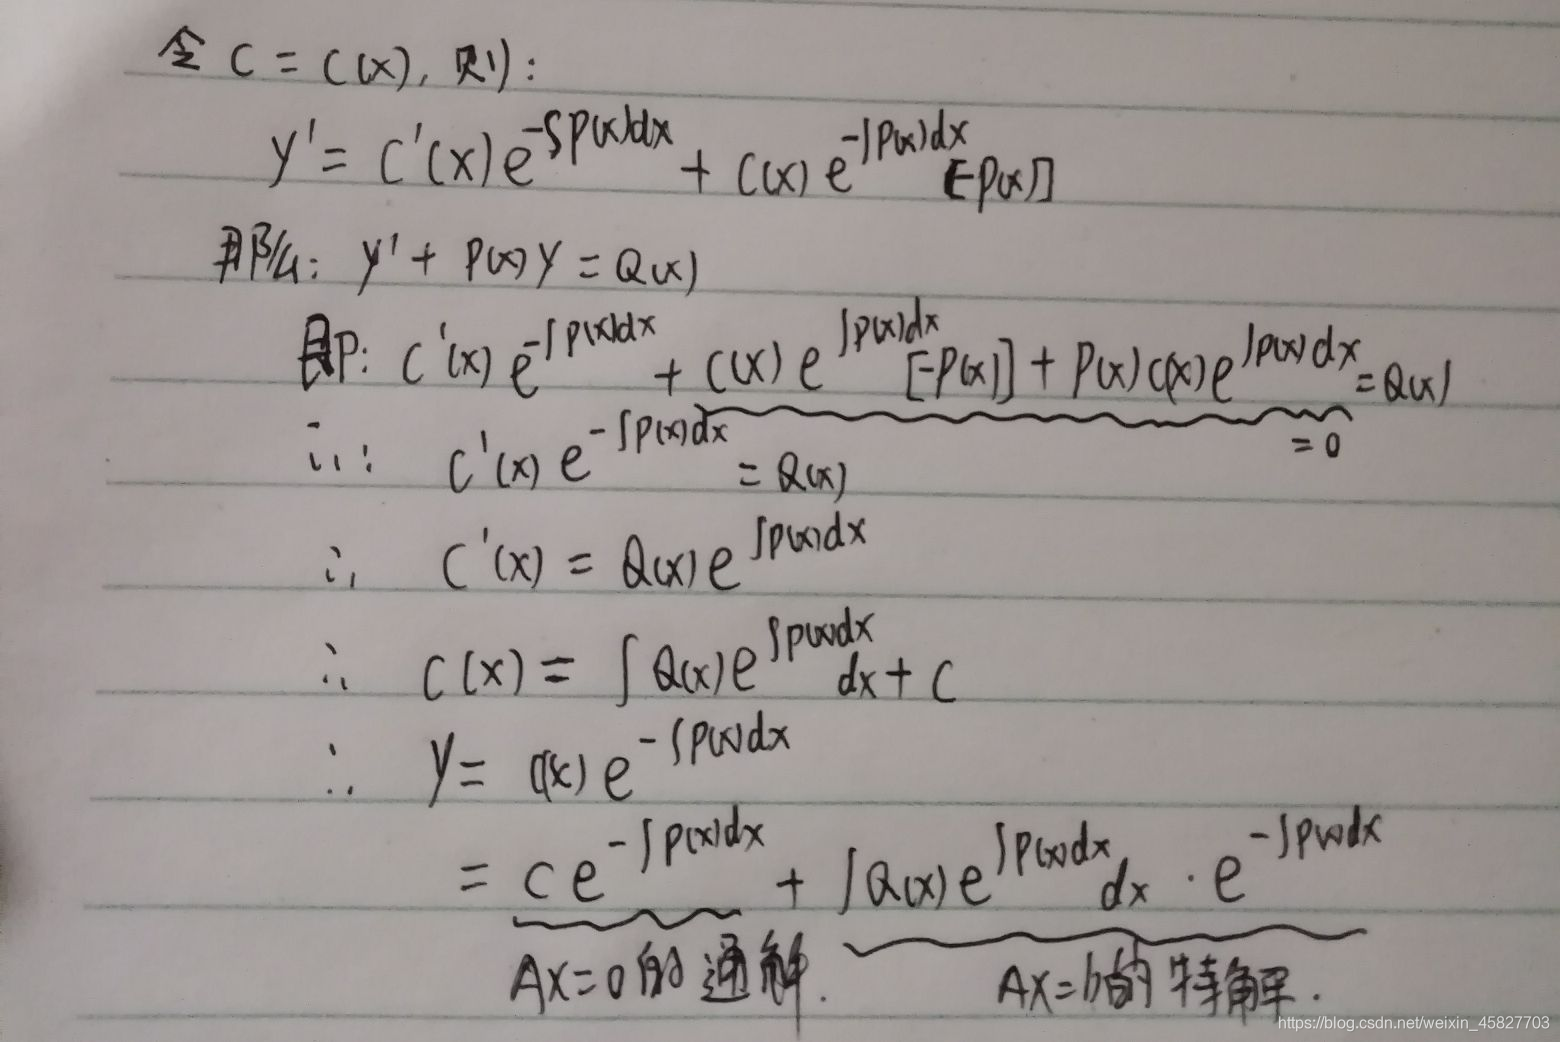 令 C = C(x), 则:
y' = C'(x) e^{-∫P(x)dx} + C(x) e^{-∫P(x)dx} [-P(x)]
那么: y' + P(x) y = Q(x)
即: C'(x) e^{-∫P(x)dx} + C(x) e^{∫P(x)dx} [-P(x)] + P(x) C(x) e^{∫P(x)dx} = Q(x)
= 0
∴: C'(x) e^{-∫P(x)dx} = Q(x)
∴ C'(x) = Q(x) e^{∫P(x)dx}
∴ C(x) = ∫ Q(x) e^{∫P(x)dx} dx + C
∴ y = C(x) e^{-∫P(x)dx}
= C e^{-∫P(x)dx} + ∫ Q(x) e^{∫P(x)dx} dx · e^{-∫P(x)dx}
AX=0的通解. AX=b的特解.
https://blog.csdn.net/weixin_45827703